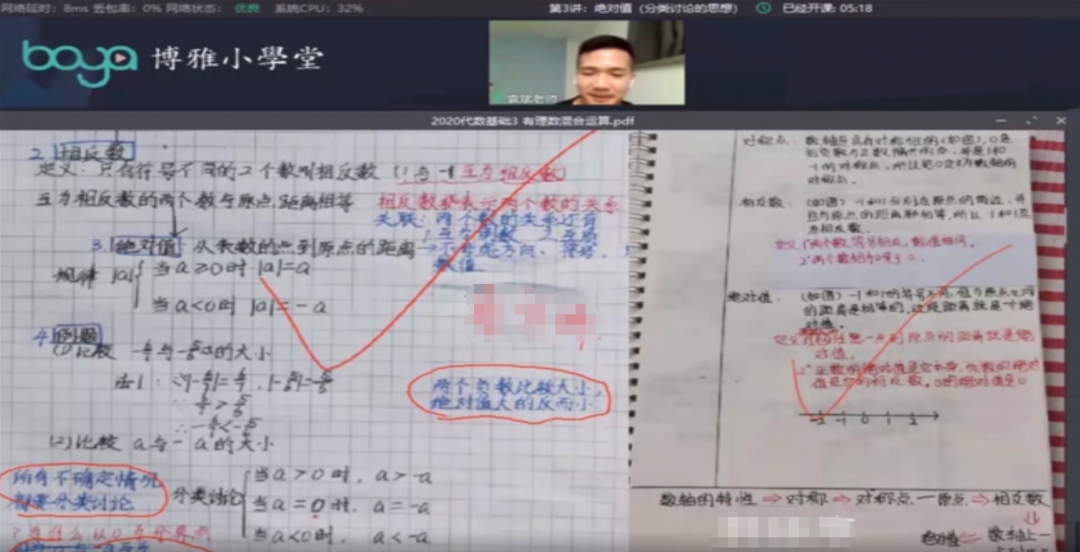 网络延时：8ms 丢包率：0% 网络状态：优良 系统CPU：32%
第3讲：绝对值（分类讨论的思想）
已经开课：05:18
boya 博雅小學堂
袁斌老师
2020代数基础3 有理数混合运算.pdf
2. 相反数
定义：只有符号不同的2个数叫相反数（1与-1互为相反数）
互为相反数的两个数与原点距离相等
相反数就表示两个数的关系
关联：两个数的关系还有
3. 绝对值：从表数的点到原点的距离
数值
规律 |a|
当a≥0时 |a|=a
当a<0时 |a|=-a
4. 例题
(1)比较
的大小
法1：
两个负数比较大小，
绝对值大的反而小
(2)比较 a与-a的大小
所有不确定情况
都要分类讨论
分类讨论
当a>0时，a>-a
当a=0时，a=-a
当a<0时，a<-a
?为什么以0为分界点
对称点：
数轴是具有对称性的（如图），0是
的对称点，所以把0定为数轴的
对称点。
相反数：
（如图）-1和1分别在原点的两边，并
且与原点的距离都相等，所以-1和1互
为相反数。
定义：1°两个数，符号相反，数值相同。
2°两个数相加等于0。
绝对值：
（如图）-1和1的符号不同，但与原点之间
的距离是相等的，这段距离就是个绝
对值。
对值。
2°正数的绝对值是它本身，负数的绝对
值是它的相反数，0的绝对值是0
-2 -1 0 1 2
数轴的特性⇒对称⇒对称点—原点⇒相反数
绝对值⇐数轴上一